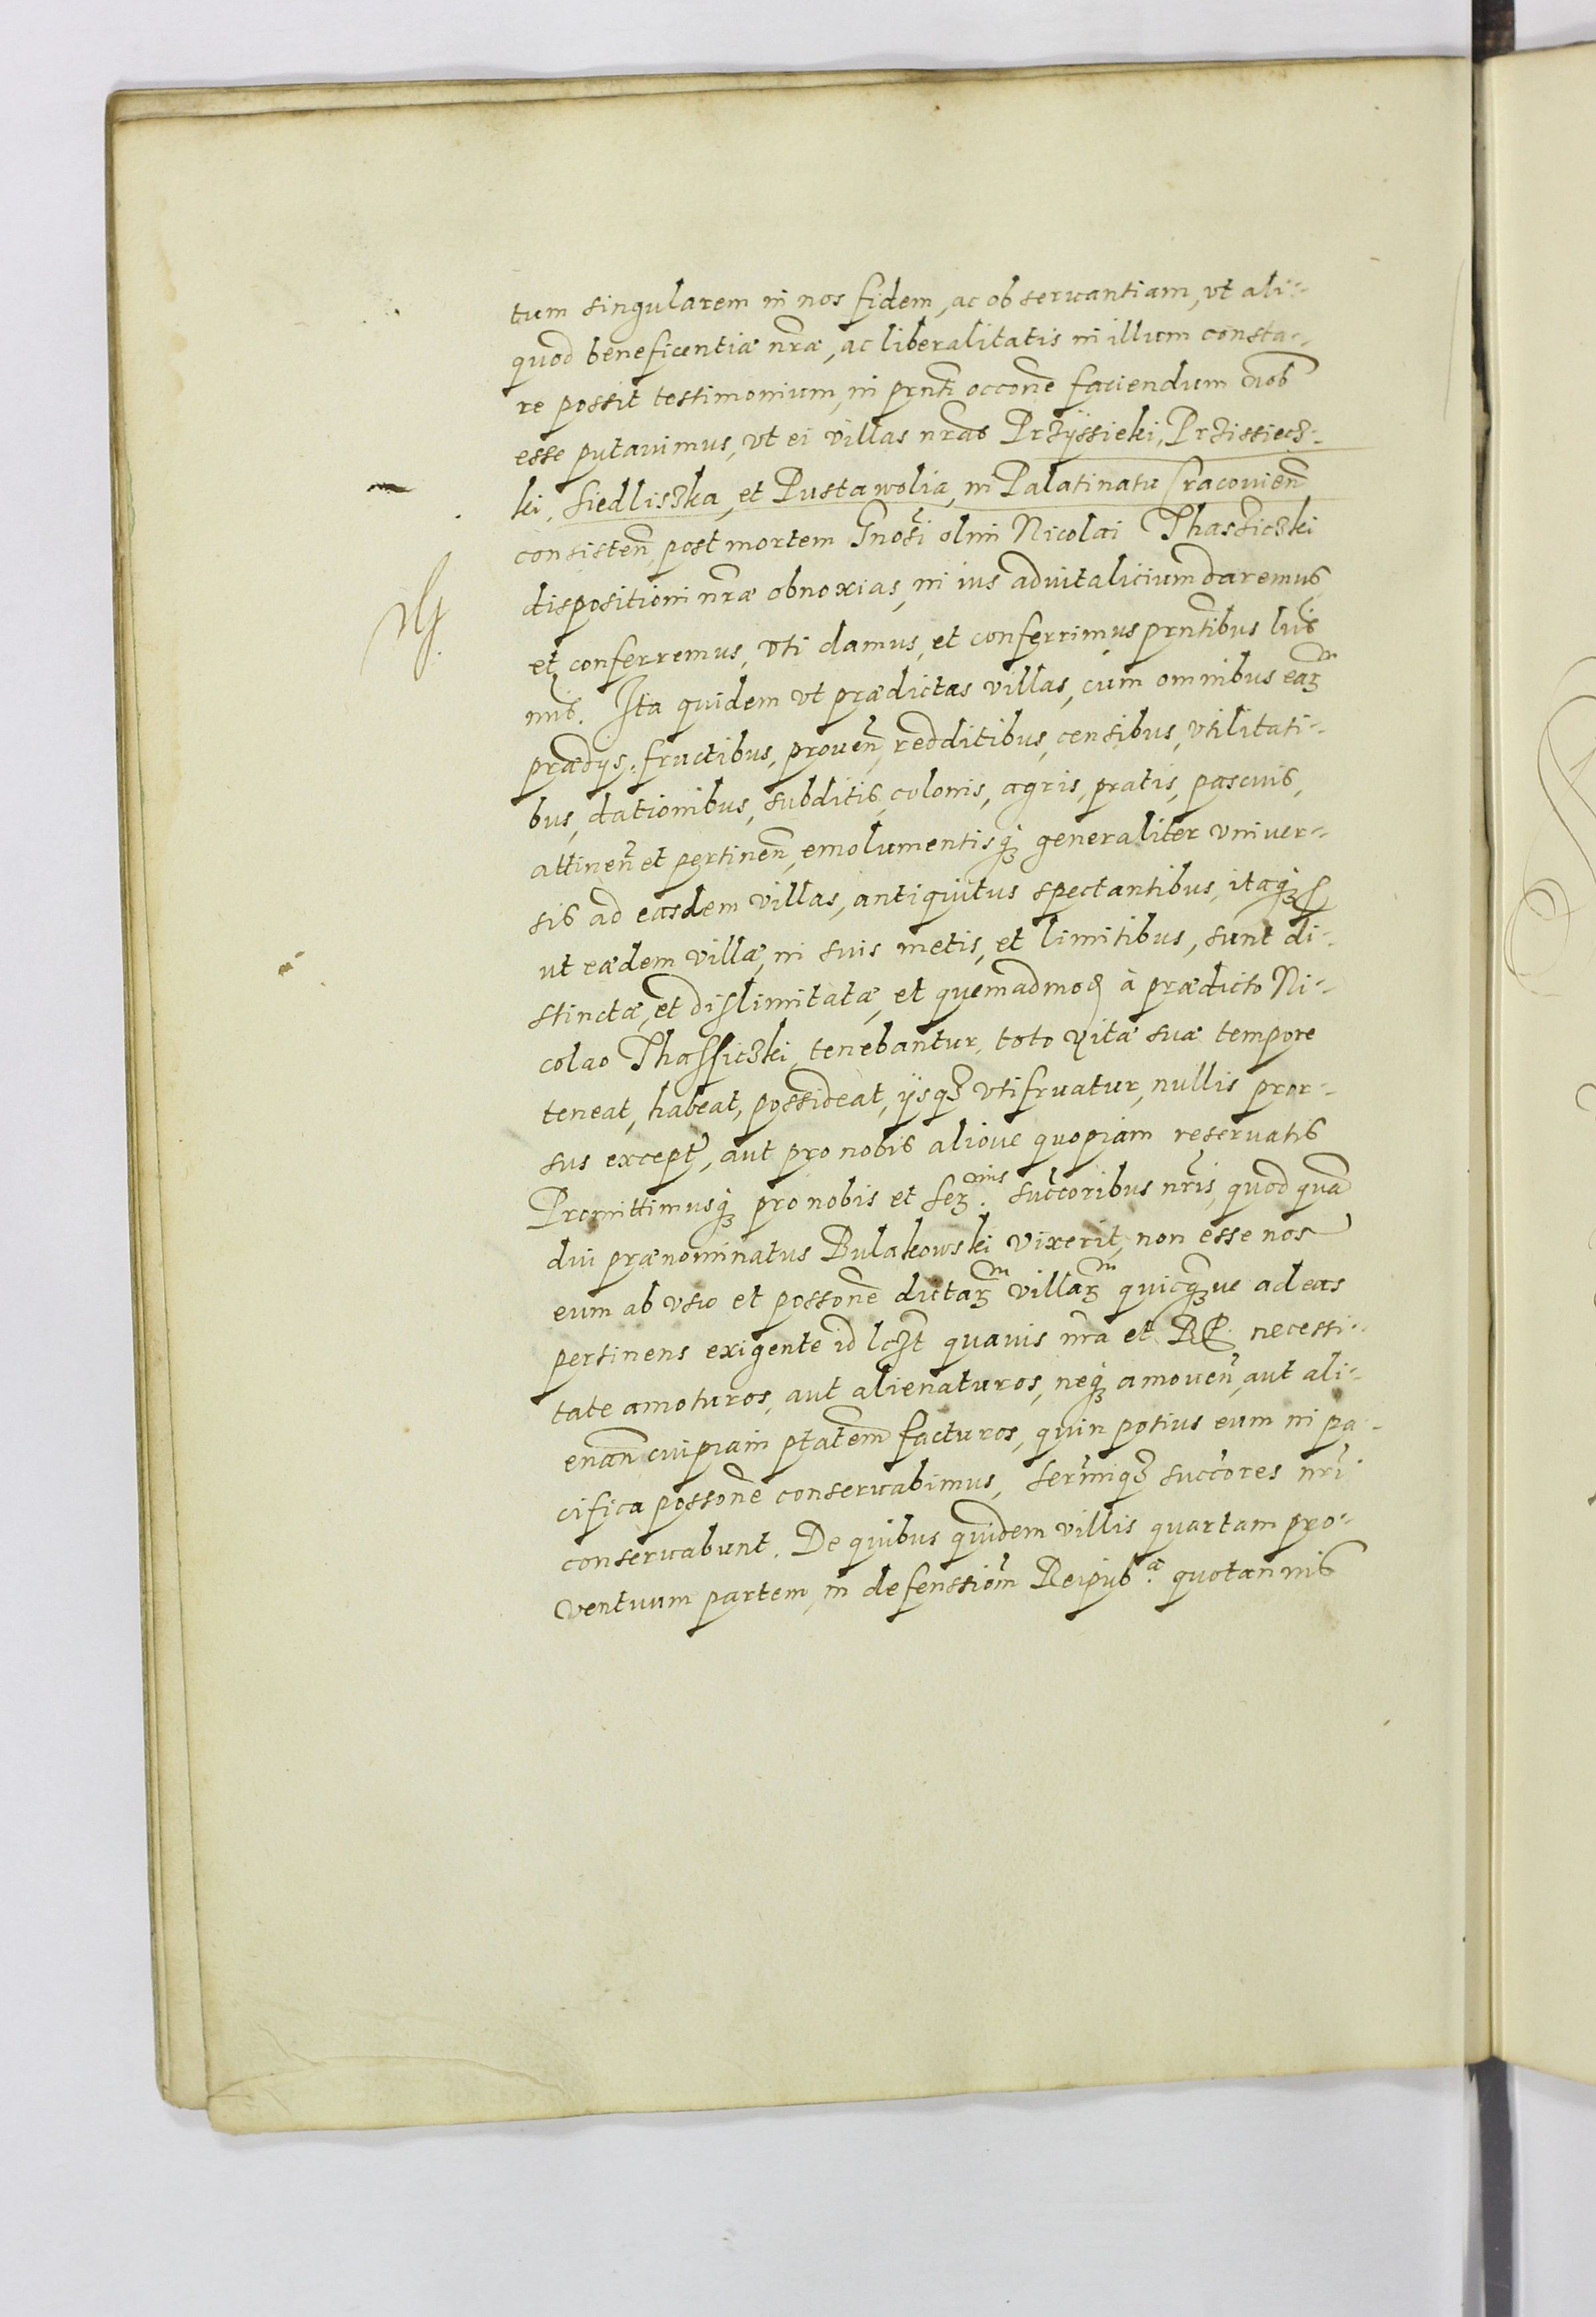 tum singularem in nos fidem, ac observantiam, vt ali-
quod beneficentiæ nr̃æ, ac liberalitatis in illum consta-
re possit testimonium, in prn̄ti occōne faciendum nob
esse putavimus, vt ei villas nr̃as Przÿssieki, Przissiecz-
ki, Siedliszka, et Pusta wolia, in Palatinatu Cracovien̄
consisten̄ post mortem Gnosi olim Nicolai Thasziczki
dispositioni nr̃æ obnoxias, in ius advitalicium daremus
et conferremus, vti damus, et conferrimus prn̄tibus lr̃is
nr̃is. Ita quidem vt prædictas villas, cum omnibus eaꝝm
prædijs, fructibus, proven̄, redditibus, censibus, vtilitati-
bus, dationibus, subditis, colonis, agris, pratis, pascuis,
attinen̄ et pertinen̄, emolumentisq₃ generaliter vniver-
sis ad easdem villas, antiquitus spectantibus, itaq₃
ut eædem villæ, in suis metis, et limitibus, sunt di-
stinctæ, et dislimitatæ, et quemadmod̃ à prædicto Ni-
colao Thassiczki, tenebantur, toto vitæ suæ tempore
teneat, habeat, possideat, ijsq₃ vtifruatur, nullis pror-
sus except̃, aut pro nobis aliove quopiam reservatis
Promittimusq₃ pro nobis et Seꝝmis. succ̃oribus nr̃is, quod quā
diu prænominatus Bulakowski vixerit, non esse nos
eum ab vsu et possōne dictaꝝm villaꝝm quicq₃ve ad eas
pertinens exigente id lczt̃ quavis nr̃a et RP. necessi-
tate amoturos, aut alienaturos, neq₃ amoven̄, aut ali-
enan̄ cuipiam ptātem facturos, quin potius eum in pa-
cifica possōne conservabimus, Ser̃miq₃ succ̃ores nr̃i
conservabunt. De quibus quidem villis quartam pro-
ventuum partem, in defenssion̄m Reipub.æ quotannis